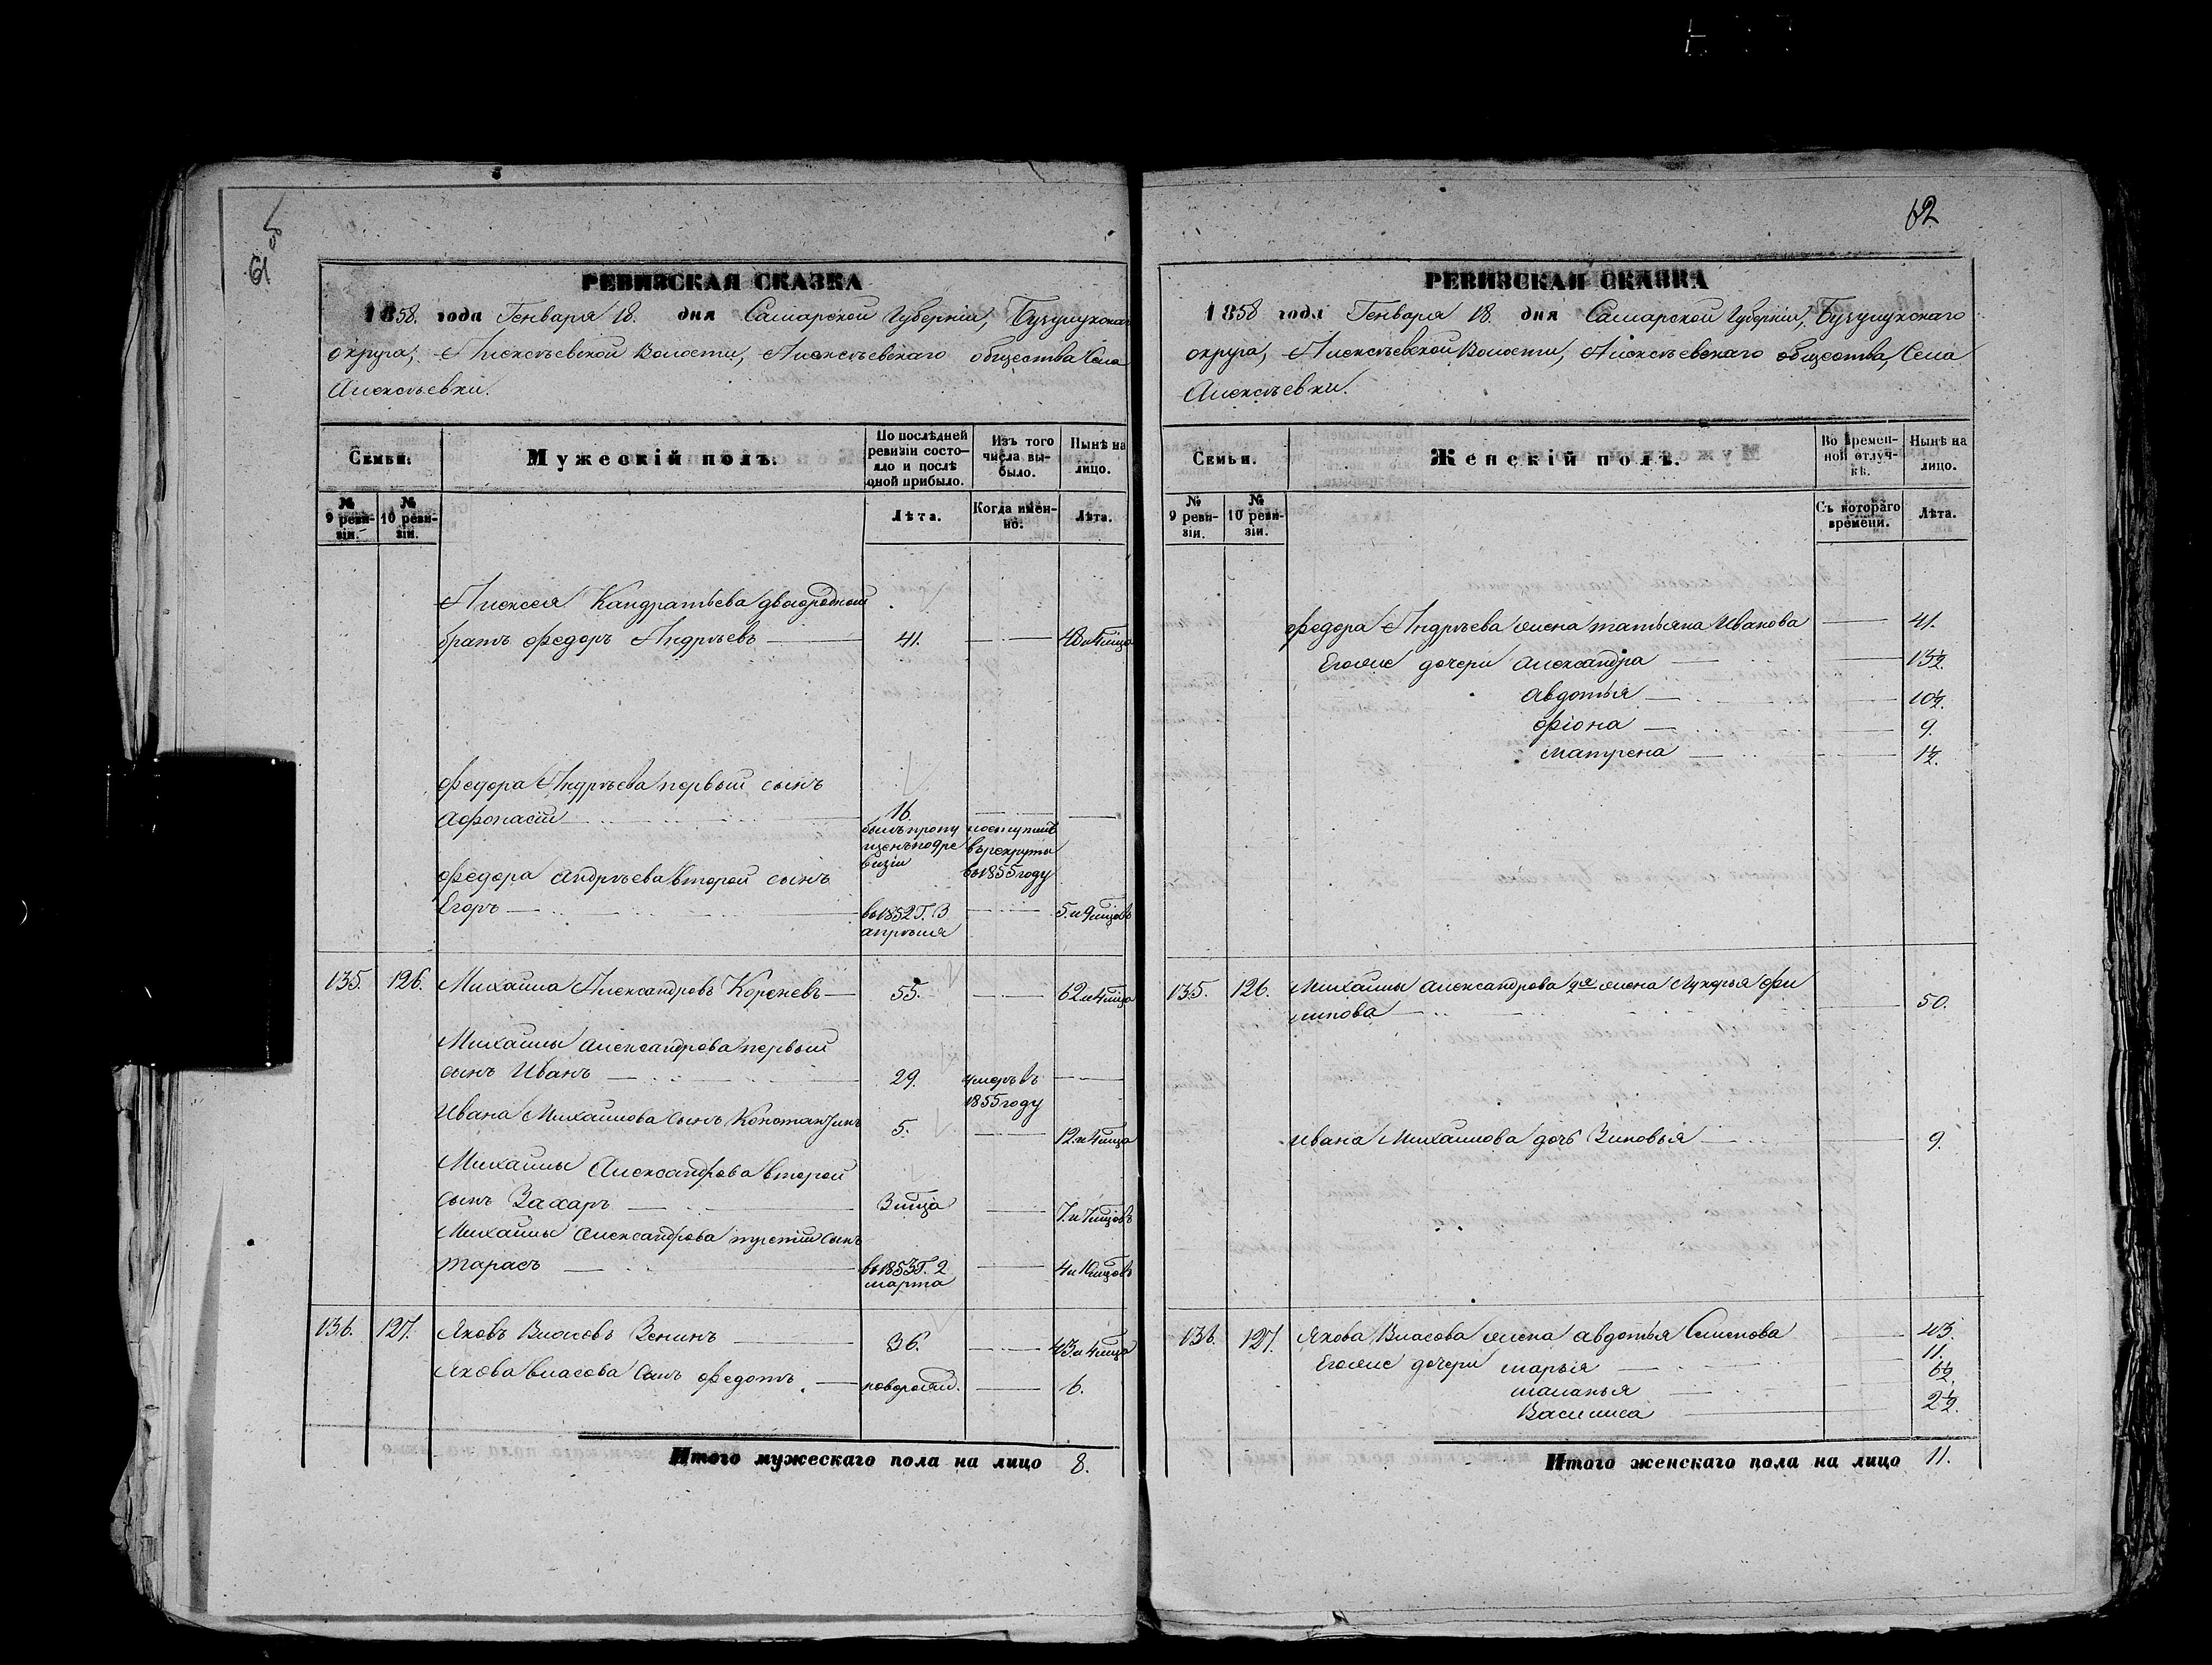 61
РЕВИЗСКАЯ СКАЗКА
1858. года Генваря 18. дня Самарской Губерніи, Бузулукскаго
округа, Алексѣевской Волости, Алексѣевскаго общества Села
Алексѣевки.
Семьи.
Мужескій полъ.
По послѣдней ревизіи состояло и послѣ оной прибыло.
Изъ того числа выбыло.
Нынѣ на лицо.
№ 9 ревизіи.
№ 10 ревизіи.
Лѣта.
Когда именно.
Лѣта.
Алексея Кандратьева двоюродный
братъ Федоръ Андрѣевъ 41. 48 и 4 мца
Федора Андрѣева первый сынъ
Афонасій 16.
былъ пропу
щенъ по 9 ре
визіи
поступилъ
въ рекруты
въ 1855 году
Федора Андрѣева второй сынъ
Егоръ въ 1852 г. 3 апрѣля 5. и 9 мцовъ
135. 126. Михаила Александровъ Кореневъ 55. 62 и 4 мца
Михаилы Александрова первый
сынъ Иванъ 29. умеръ въ 1855 году
Ивана Михаилова сынъ Константинъ 5. 12. и 4 мца
Михаилы Александрова второй
сынъ Захаръ 3 мца 7. и 7 мцовъ
Михаилы Александрова третій сынъ
Тарасъ въ 1853 г. 2 марта 4 и 10 мцовъ
136. 127. Яковъ Власовъ Зенинъ 36. 43. и 4 мца
Якова Власова сынъ Федотъ новорожд. 6.
Итого мужескаго пола на лицо 8.
62
РЕВИЗСКАЯ СКАЗКА
1858 года Генваря 18. дня Самарской Губерніи, Бузулукскаго
округа, Алексѣевской Волости, Алексѣевскаго общества, Села
Алексѣевки.
Семьи.
Женскій полъ.
Во временной отлучкѣ.
Нынѣ на лицо.
№ 9 ревизіи.
№ 10 ревизіи.
Съ котораго времени.
Лѣта.
Федора Андрѣева жена татьяна Иванова 41.
Егожие дочери Александра 13½.
Авдотья 10½.
Фіона 9.
Матрена 1½.
135. 126. Михаилы Александрова 2я жена Лукерья Фи
липова 50.
Ивана Михаилова дочь Зиновья 9.
136. 127. Якова Власова жена Авдотья Семенова 43.
Егожие дочери марья 11.
маланья 6½.
Василиса 2½.
Итого женскаго пола на лицо 11.